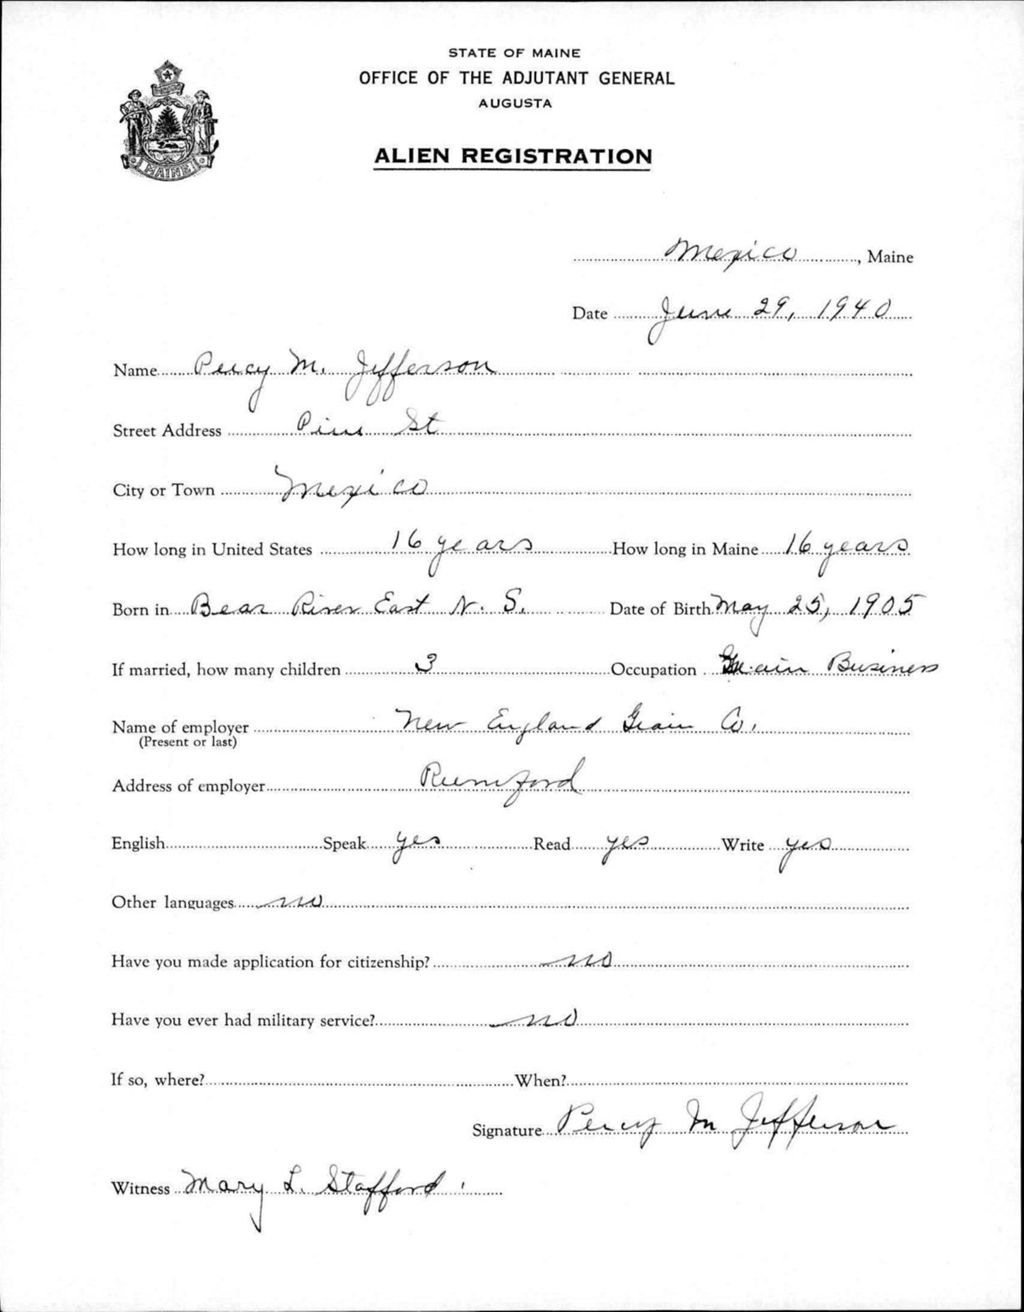 STATE OF MAINE
OFFICE OF THE ADJUTANT GENERAL
AUGUSTA
MAINE
ALIEN REGISTRATION
Mexico, Maine
Date June 29, 1940
Name Percy M. Jefferson
Street Address Pine St
City or Town Mexico
How long in United States 16 years How long in Maine 16 years
Born in Bear River East N. S. Date of Birth May 25, 1905
If married, how many children 3 Occupation Grain Business
Name of employer New England Grain Co.
(Present or last)
Address of employer Rumford
English Speak yes Read yes Write yes
Other languages no
Have you made application for citizenship? no
Have you ever had military service? no
If so, where? When?
Signature Percy M Jefferson
Witness Mary L. Stafford